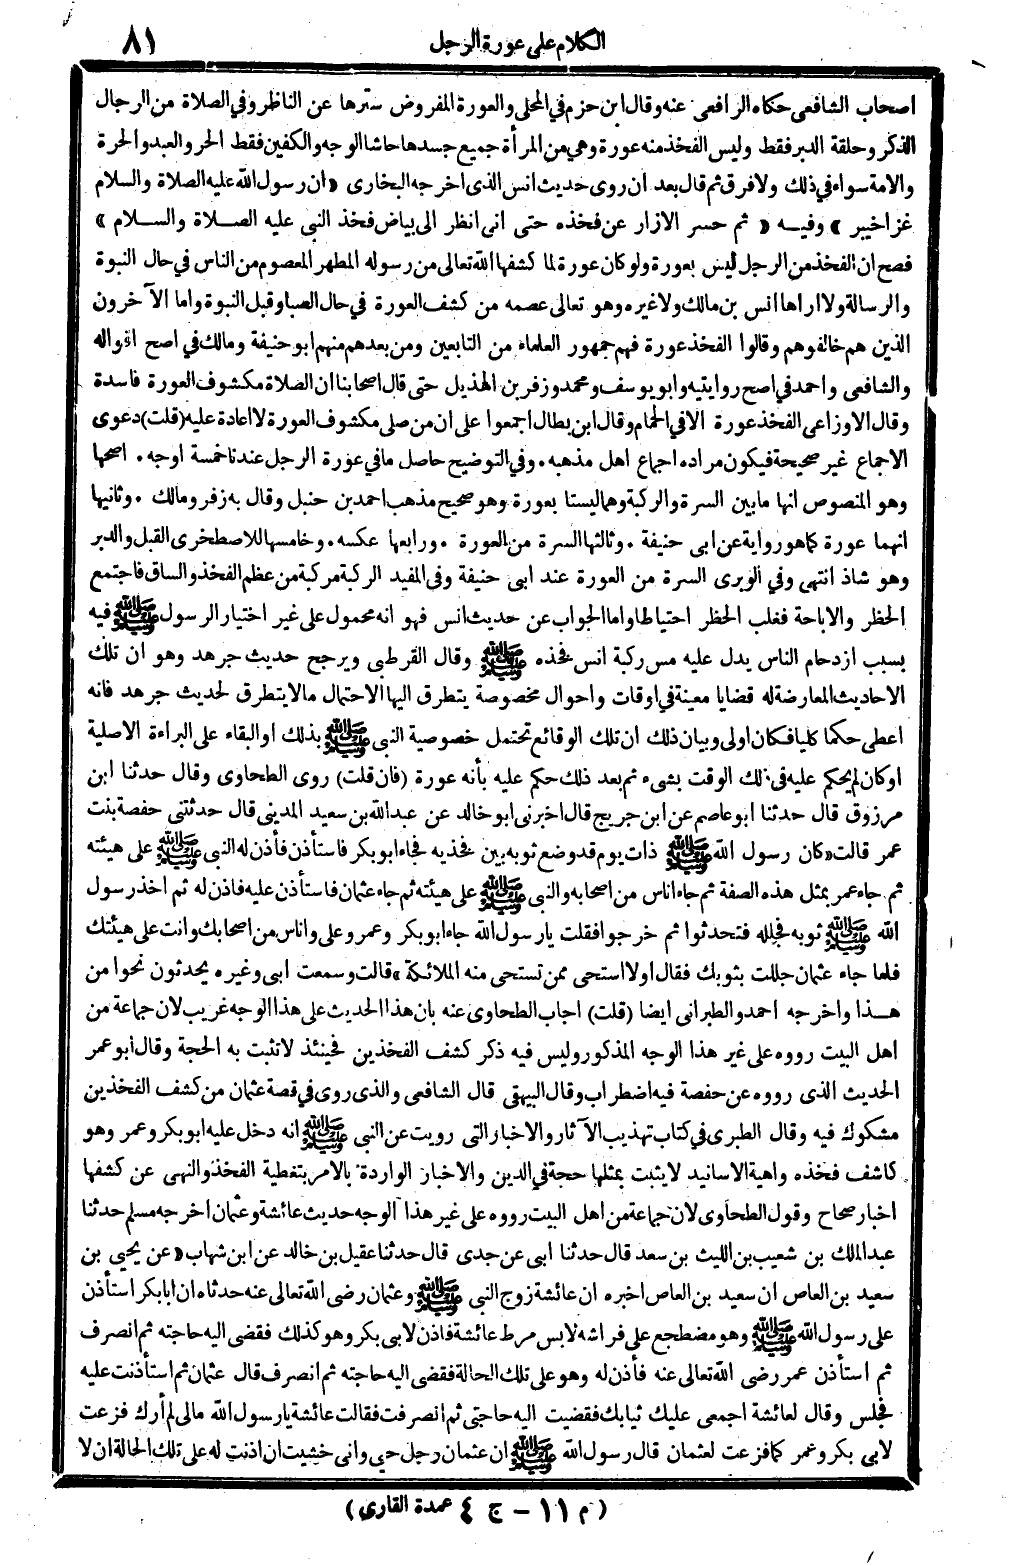 الكلام على عورة الرجل
٨١
اصحاب الشافعى حكاه الرافعى عنه وقال ابن حزم في المحلى والعورة المفروض سترها عن الناظر وفي الصلاة من الرجال
الذكر وحلقة الدبر فقط وليس الفخذ منه عورة وهي من المرأة جميع جسدها حاشا الوجه والكفين فقط الحر والعبد والحرة
والامة سواء في ذلك ولا فرق ثم قال بعد ان روى حديث انس الذى اخرجه البخارى «ان رسول الله عليه الصلاة والسلام
غزا خيبر» وفيه «ثم حسر الازار عن فخذه حتى انى انظر الى بياض فخذ النبي عليه الصلاة والسلام»
فصح ان الفخذ من الرجل ليس بعورة ولو كان عورة لما كشفها الله تعالى من رسوله المطهر المعصوم من الناس في حال النبوة
والرسالة ولا اراها انس بن مالك ولا غيره وهو تعالى عصمه من كشف العورة في حال الصبا وقبل النبوة واما الآخرون
الذين هم خالفوهم وقالوا الفخذ عورة فهم جمهور العلماء من التابعين ومن بعدهم منهم ابو حنيفة ومالك في اصح اقواله
والشافعى واحمد في اصح روايتيه وابو يوسف ومحمد وزفر بن الهذيل حتى قال اصحابنا ان الصلاة مكشوف العورة فاسدة
وقال الاوزاعى الفخذ عورة الا في الحمام وقال ابن بطال اجمعوا على ان من صلى مكشوف العورة لا اعادة عليه (قلت) دعوى
الاجماع غير صحيحة فيكون مراده اجماع اهل مذهبه. وفي التوضيح حاصل ما في عورة الرجل عندنا خمسة اوجه. اصحها
وهو المنصوص انها ما بين السرة والركبة وهما ليستا بعورة وهو صحيح مذهب احمد بن حنبل وقال به زفر ومالك. وثانيها
انهما عورة كما هو رواية عن ابى حنيفة. وثالثها السرة من العورة. ورابعها عكسه. وخامسها للاصطخرى القبل والدبر
وهو شاذ انتهى وفي الوبرى السرة من العورة عند ابى حنيفة وفى المفيد الركبة مركبة من عظم الفخذ والساق فاجتمع
الحظر والاباحة فغلب الحظر احتياطا واما الجواب عن حديث انس فهو انه محمول على غير اختيار الرسول ﷺ فيه
بسبب ازدحام الناس يدل عليه مس ركبة انس فخذه ﷺ وقال القرطبى ويرجح حديث جرهد وهو ان تلك
الاحاديث المعارضة له قضايا معينة في اوقات واحوال مخصوصة يتطرق اليها الاحتمال مالا يتطرق لحديث جرهد فانه
اعطى حكما كليا فكان اولى وبيان ذلك ان تلك الوقائع تحتمل خصوصية النبى ﷺ بذلك او البقاء على البراءة الاصلية
او كان لم يحكم عليه في ذلك الوقت بشىء ثم بعد ذلك حكم عليه بأنه عورة (فان قلت) روى الطحاوى وقال حدثنا ابن
مرزوق قال حدثنا ابو عاصم عن ابن جريج قال اخبرنى ابو خالد عن عبد الله بن سعيد المدينى قال حدثتنى حفصة بنت
عمر قالت «كان رسول الله ﷺ ذات يوم قد وضع ثوبه بين فخذيه فجاء ابو بكر فاستأذن فأذن له النبى ﷺ على هيئته
ثم جاء عمر بمثل هذه الصفة ثم جاء اناس من اصحابه والنبى ﷺ على هيئته ثم جاء عثمان فاستأذن عليه فاذن له ثم اخذ رسول
الله ﷺ ثوبه فجلله فتحدثوا ثم خرجوا فقلت يارسول الله جاء ابو بكر وعمر وعلى واناس من اصحابك وانت على هيئتك
فلما جاء عثمان جللت بثوبك فقال اولا استحى ممن تستحى منه الملائكة» قالت وسمعت ابى وغيره يحدثون نحوا من
هذا واخرجه احمد والطبرانى ايضا (قلت) اجاب الطحاوى عنه بان هذا الحديث على هذا الوجه غريب لان جماعة من
اهل البيت رووه على غير هذا الوجه المذكور وليس فيه ذكر كشف الفخذين فحينئذ لا تثبت به الحجة وقال ابو عمر
الحديث الذى رووه عن حفصة فيه اضطراب وقال البيهقى قال الشافعى والذى روى في قصة عثمان من كشف الفخذين
مشكوك فيه وقال الطبرى في كتاب تهذيب الآثار والاخبار التى رويت عن النبى ﷺ انه دخل عليه ابو بكر وعمر وهو
كاشف فخذه واهية الاسانيد لا يثبت بمثلها حجة في الدين والاخبار الواردة بالامر بتغطية الفخذ والنهى عن كشفها
اخبار صحاح وقول الطحاوى لان جماعة من اهل البيت رووه على غير هذا الوجه حديث عائشة وعثمان اخرجه مسلم حدثنا
عبد الملك بن شعيب بن الليث بن سعد قال حدثنا ابى عن جدى قال حدثنا عقيل بن خالد عن ابن شهاب «عن يحيى بن
سعيد بن العاص ان سعيد بن العاص اخبره ان عائشة زوج النبى ﷺ وعثمان رضى الله تعالى عنه حدثاه ان ابا بكر استأذن
على رسول الله ﷺ وهو مضطجع على فراشه لابس مرط عائشة فاذن لابى بكر وهو كذلك فقضى اليه حاجته ثم انصرف
ثم استأذن عمر رضى الله تعالى عنه فأذن له وهو على تلك الحالة فقضى اليه حاجته ثم انصرف قال عثمان ثم استأذنت عليه
فجلس وقال لعائشة اجمعى عليك ثيابك فقضيت اليه حاجتى ثم انصرفت فقالت عائشة يارسول الله مالى لم أرك فزعت
لابى بكر وعمر كما فزعت لعثمان قال رسول الله ﷺ ان عثمان رجل حيى وانى خشيت ان اذنت له على تلك الحالة ان لا
(م ١١ - ج ٤ عمدة القارى)